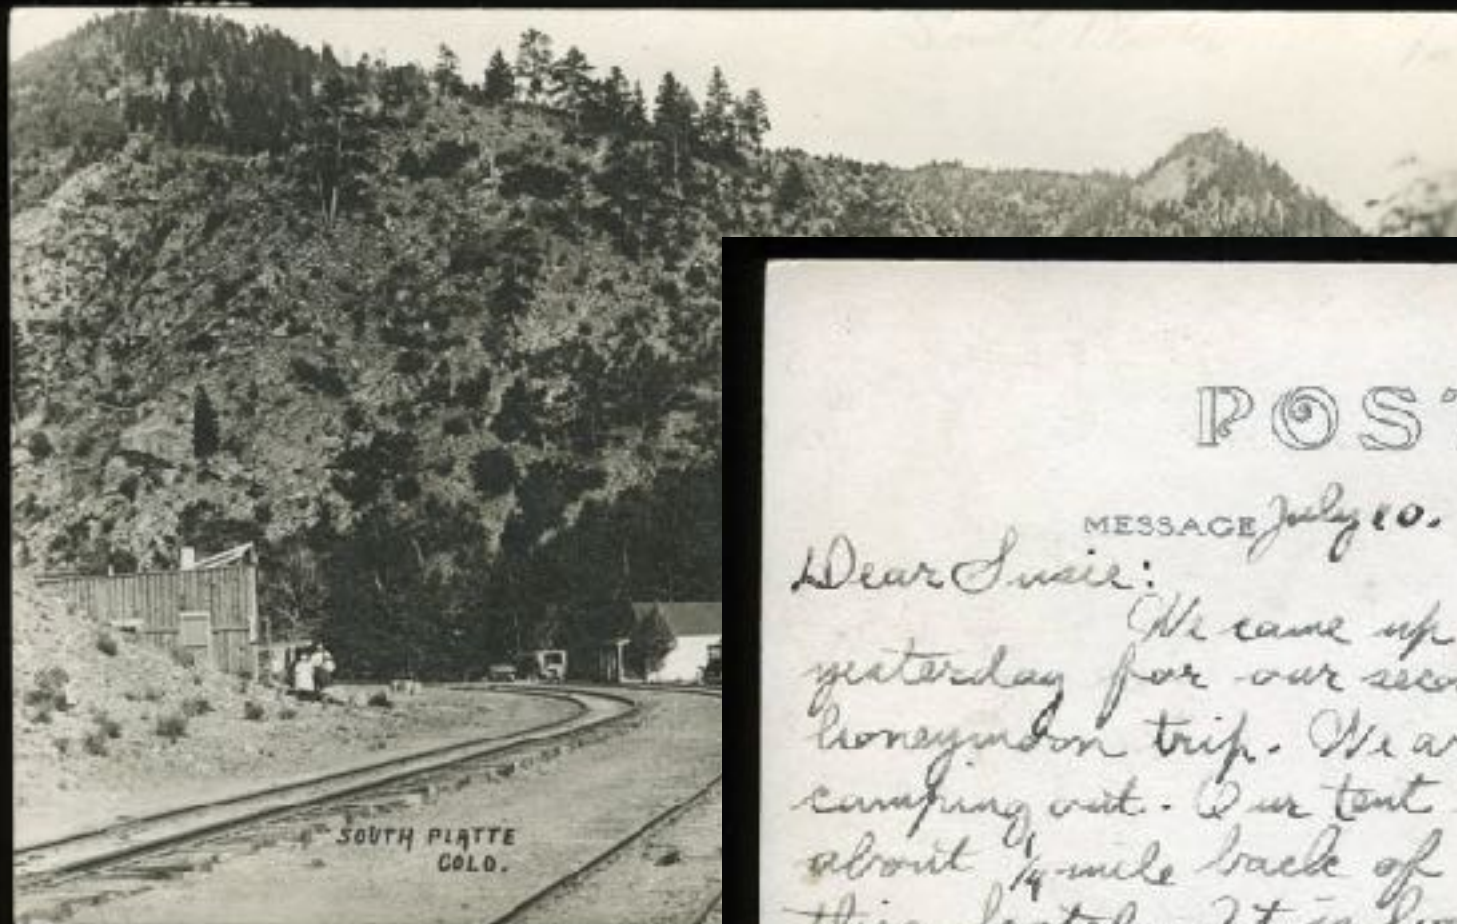 SOUTH PLATTE
COLO.
POST
MESSAGE July 10.
Dear Susie:
We came up
yesterday for our seco
honeymoon trip. We ar
camping out. Our tent
about 1/4 mile back of
this hotel. It is